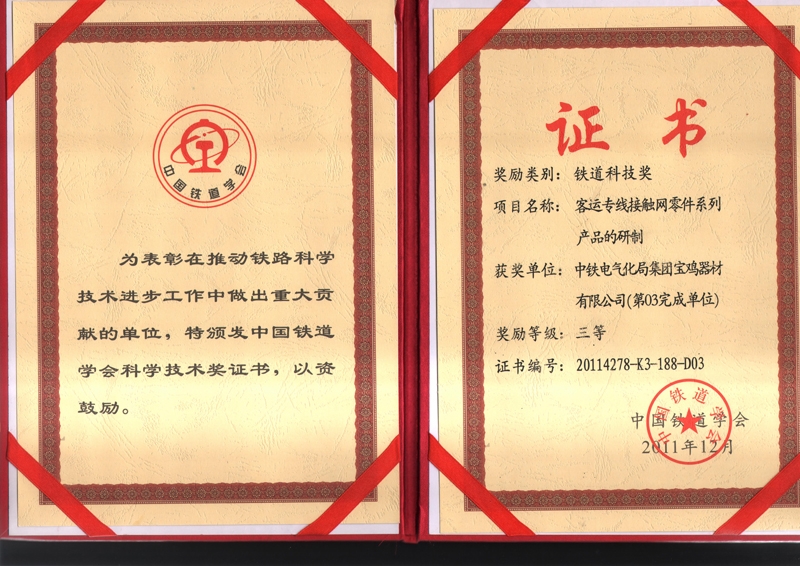 中国铁道学会
为表彰在推动铁路科学
技术进步工作中做出重大贡
献的单位，特颁发中国铁道
学会科学技术奖证书，以资
鼓励。
证书
奖励类别：铁道科技奖
项目名称：客运专线接触网零件系列
产品的研制
获奖单位：中铁电气化局集团宝鸡器材
有限公司(第03完成单位)
奖励等级：三等
证书编号：20114278-K3-188-D03
中国铁道学会
中国铁道学会
2011年12月